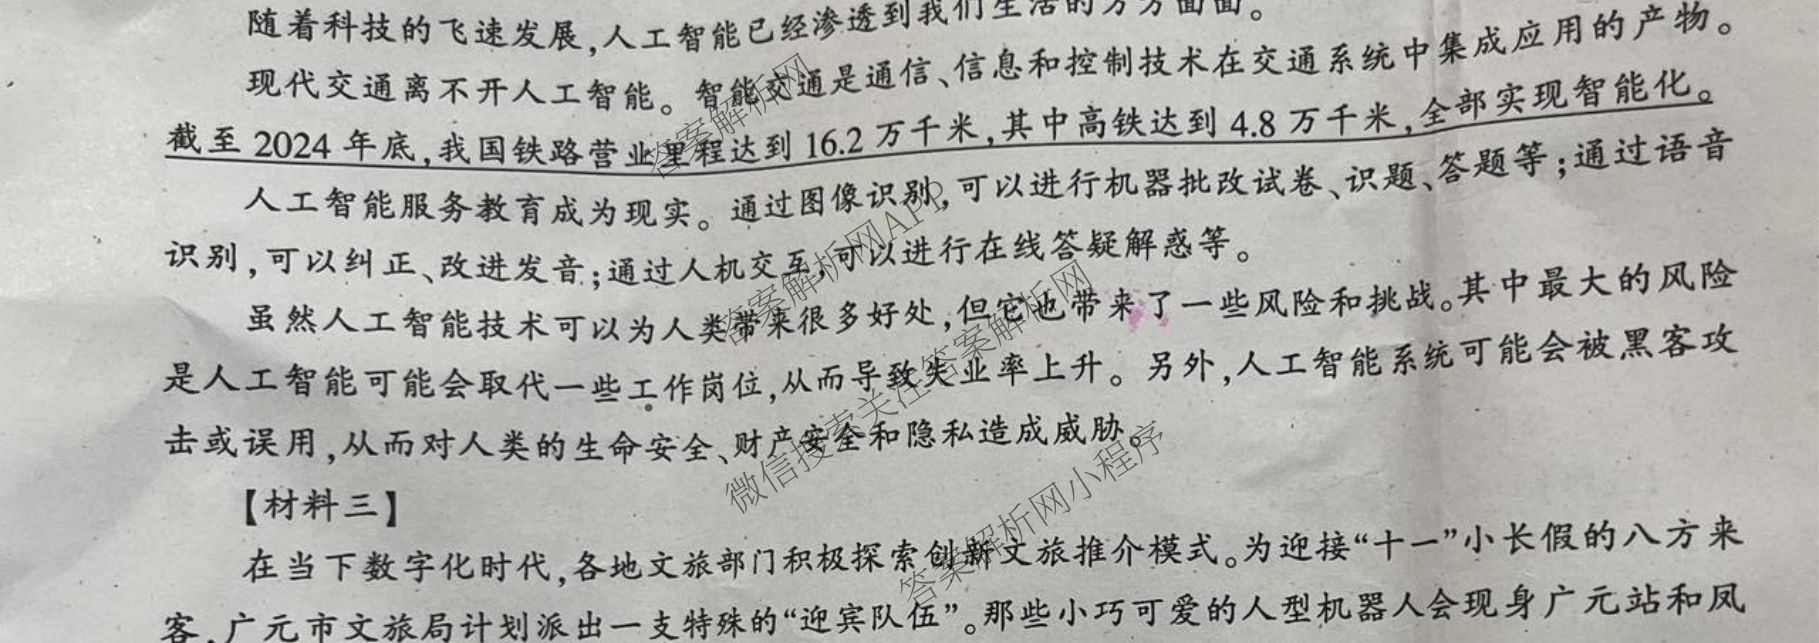 随着科技的飞速发展,人工智能已经渗透到我们生活的方方面面。
现代交通离不开人工智能。智能交通是通信、信息和控制技术在交通系统中集成应用的产物。
截至2024年底,我国铁路营业里程达到16.2万千米,其中高铁达到4.8万千米,全部实现智能化。
人工智能服务教育成为现实。通过图像识别,可以进行机器批改试卷、识题、答题等;通过语音
识别,可以纠正、改进发音;通过人机交互,可以进行在线答疑解惑等。
虽然人工智能技术可以为人类带来很多好处,但它也带来了一些风险和挑战。其中最大的风险
是人工智能可能会取代一些工作岗位,从而导致失业率上升。另外,人工智能系统可能会被黑客攻
击或误用,从而对人类的生命安全、财产安全和隐私造成威胁。
【材料三】
在当下数字化时代,各地文旅部门积极探索创新文旅推介模式。为迎接“十一”小长假的八方来
客,广元市文旅局计划派出一支特殊的“迎宾队伍”。那些小巧可爱的人型机器人会现身广元站和凤
答案解析网
答案解析网APP
微信搜索关注答案解析网
答案解析网小程序